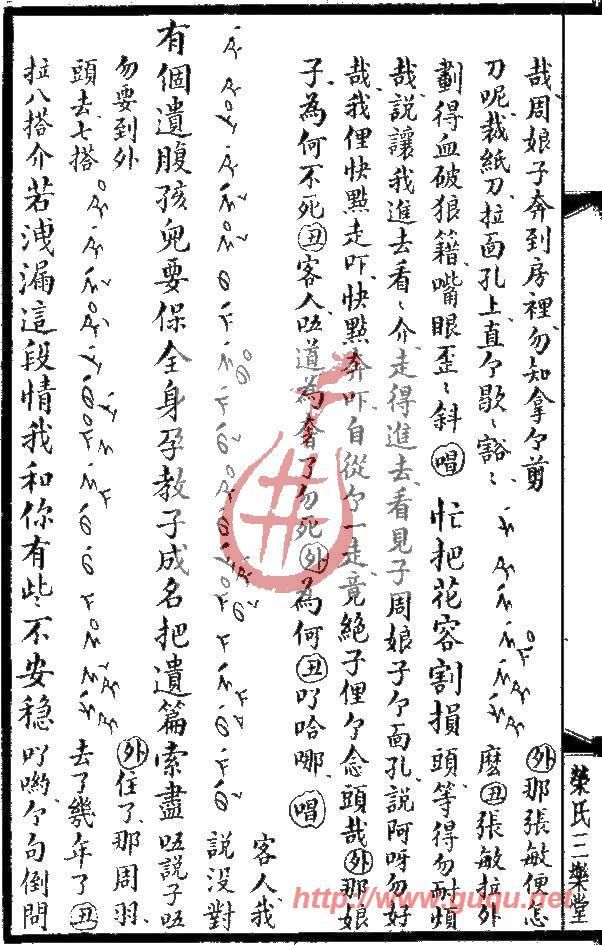 哉周娘子奔到房裡勿知拿个剪
刀呢裁紙刀拉面孔上直个歇〻豁〻 外那張敏便怎
劃得血破狼籍嘴眼歪〻斜唱忙把花容割損 麽丑張敏拉外頭等得勿耐煩
哉說讓我進去看〻介走得進去看見子周娘子个面孔說阿呀勿好
哉我俚快點走吓快點奔吓自從个一走竟絕子俚个念頭哉外那娘
子為何不死丑客人唔道為奢了勿死外為何丑叮哈哪唱
有個遺腹孩兒要保全身孕教子成名把遺篇索盡 客人我說沒對唔說子唔
勿要到外頭去七搭 外住了那周羽去了幾年了丑
拉八搭介若洩漏這段情我和你有些不安穩叮喲个句倒問
榮氏三樂堂
http://www.guqu.net